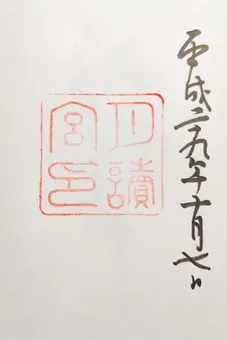 平成二十九年十月七日
月讀
宮印